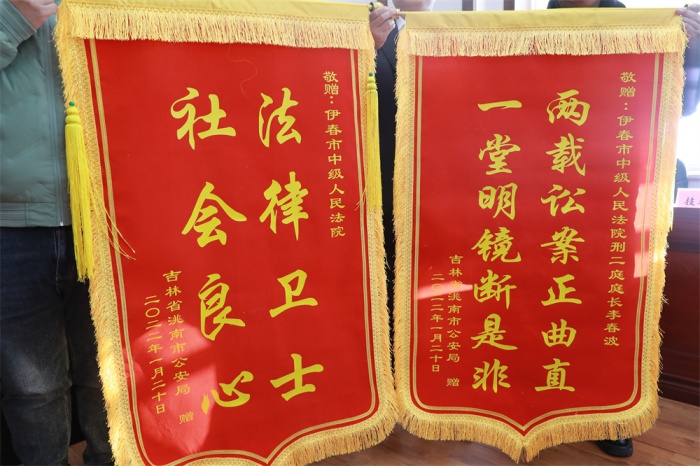 敬赠：伊春市中级人民法院
法律卫士
社会良心
吉林省洮南市公安局 赠
二〇二二年一月二十日
敬赠：伊春市中级人民法院刑二庭庭长李春波
两载讼案正曲直
一堂明镜断是非
吉林省洮南市公安局 赠
二〇二二年一月二十日